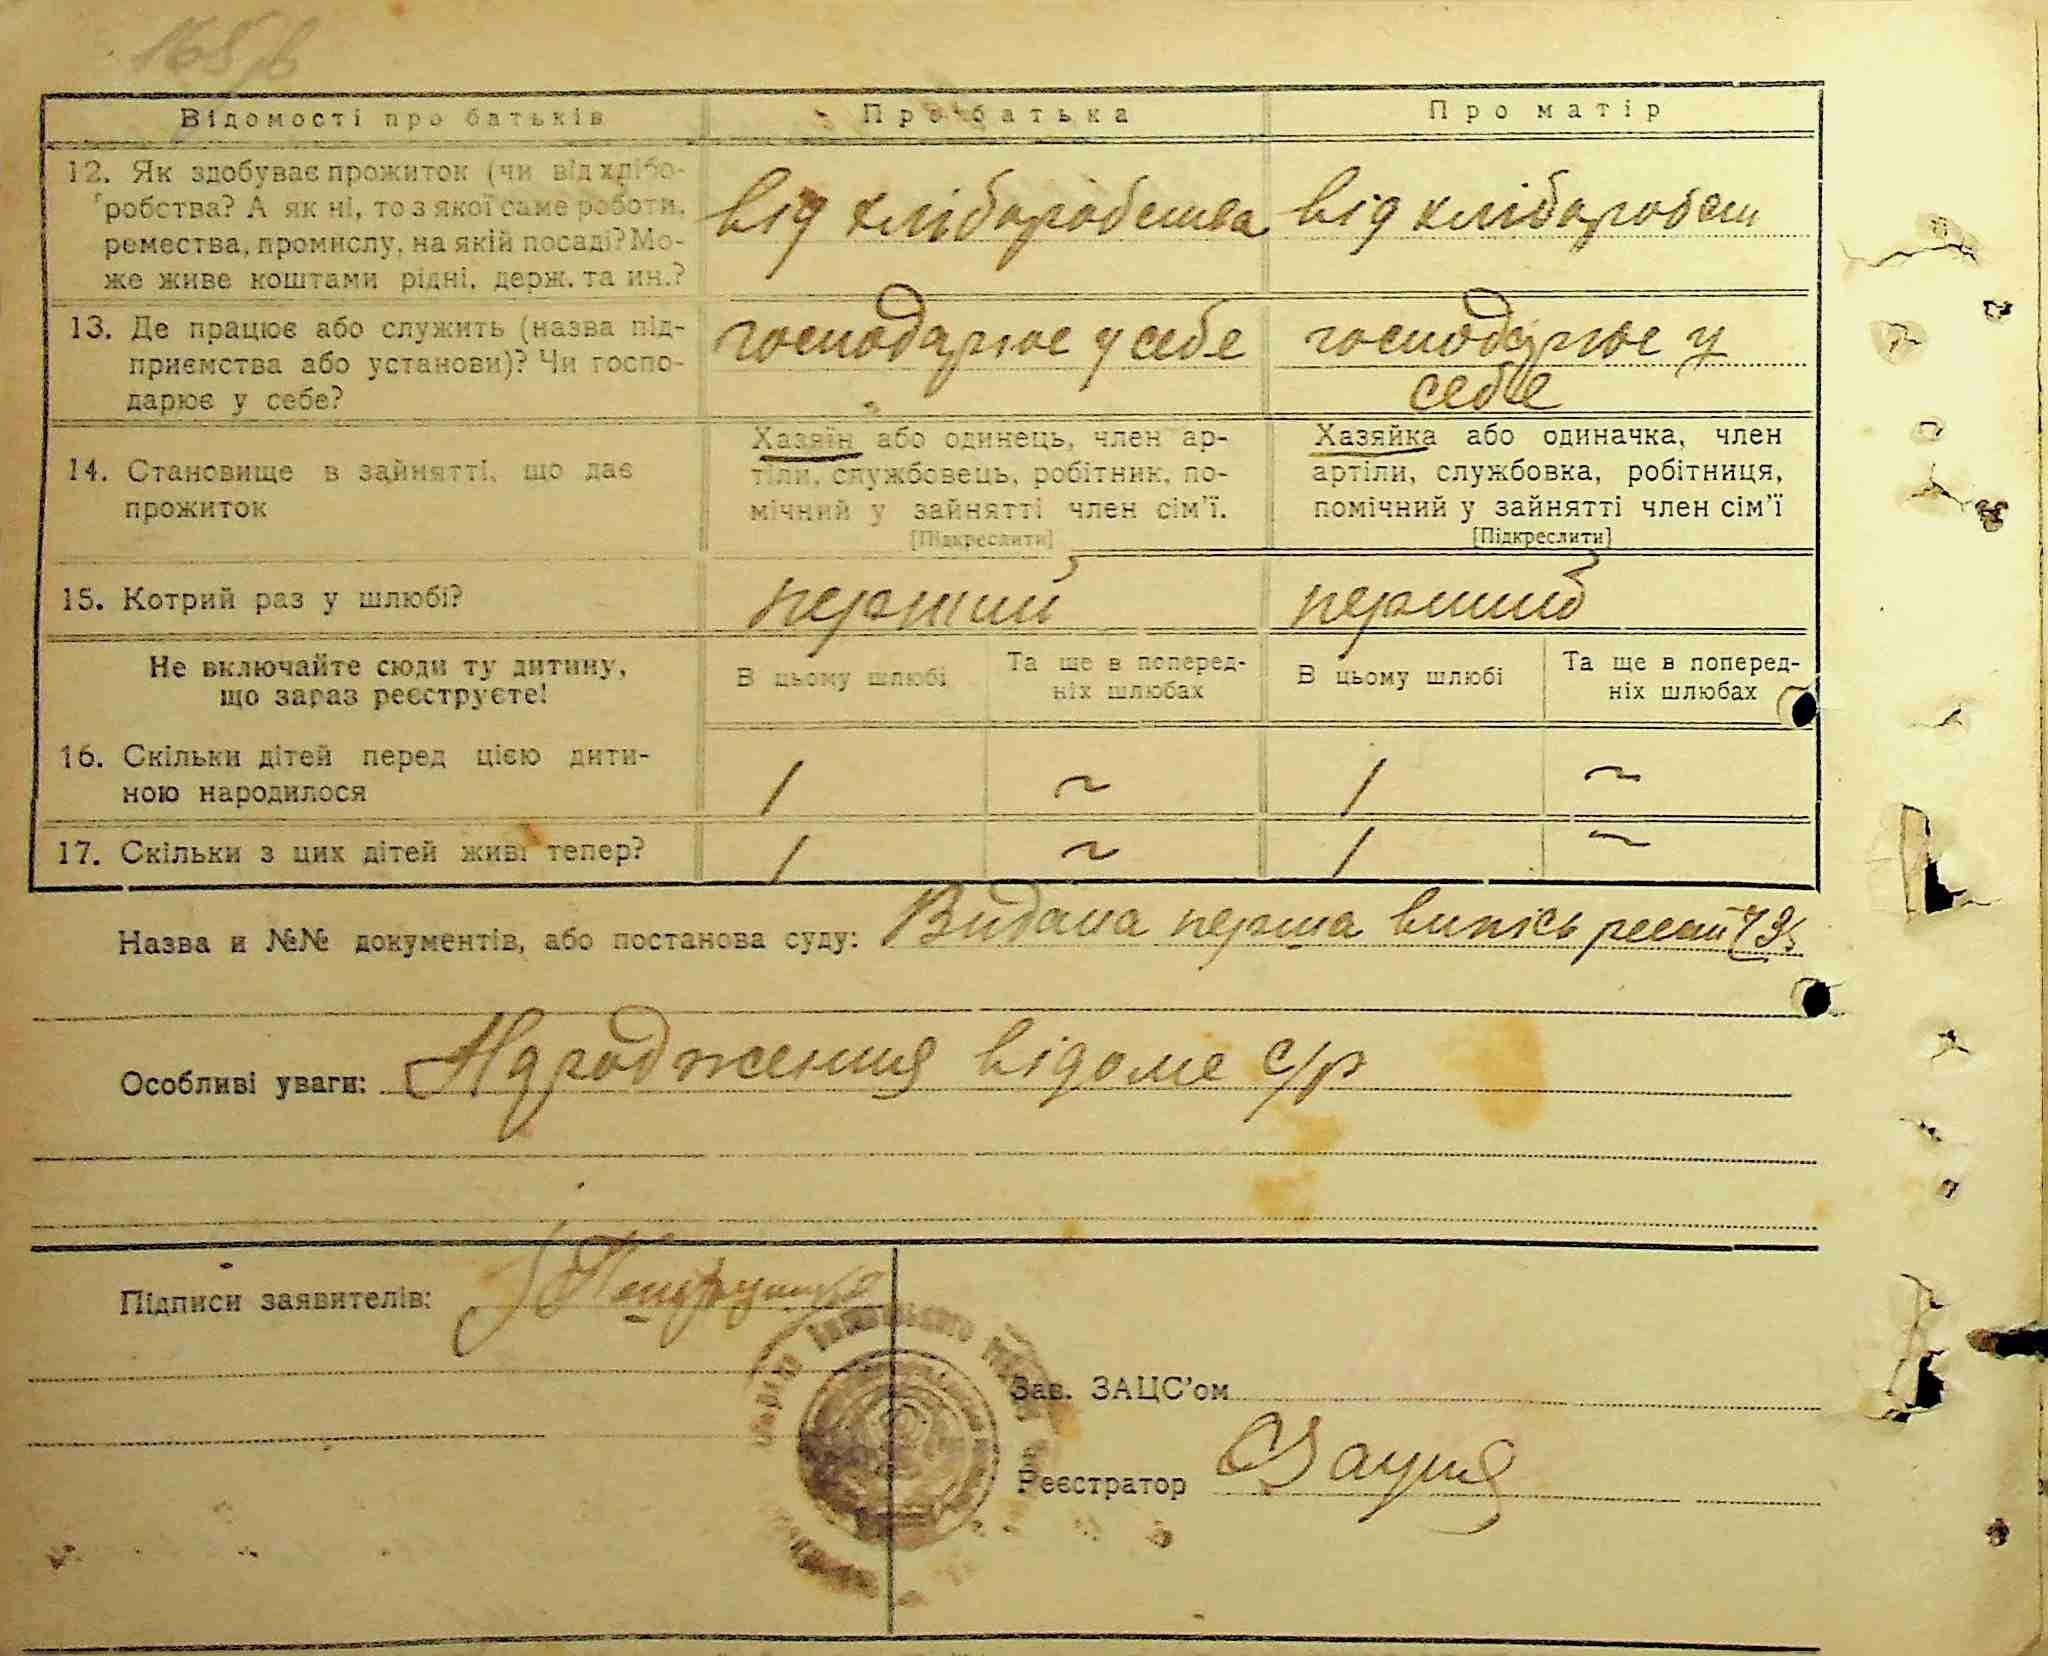 Відомості про батьків Про батька Про матір
12. Як здобуває прожиток (чи від хлібо-
робства? А як ні, то з якої саме роботи,
ремества, промислу, на якій посаді? Мо-
же живе коштами рідні, держ. та ин.?
від хліборобства від хліборобст
13. Де працює або служить (назва під-
приємства або установи)? Чи госпо-
дарює у себе?
господарює у себе
господарює у
себе
14. Становище в зайнятті, що дає
прожиток
Хазяїн або одинець, член ар-
тіли, службовець, робітник, по-
мічний у зайнятті член сім'ї.
[Підкреслити]
Хазяйка або одиначка, член
артіли, службовка, робітниця,
помічний у зайнятті член сім'ї
[Підкреслити]
15. Котрий раз у шлюбі? перший перший
Не включайте сюди ту дитину,
що зараз реєструєте!
В цьому шлюбі
Та ще в поперед-
ніх шлюбах
В цьому шлюбі
Та ще в поперед-
ніх шлюбах
16. Скільки дітей перед цією дити-
ною народилося
1 ~ 1 ~
17. Скільки з цих дітей живі тепер? 1 ~ 1 ~
Назва и №№ документів, або постанова суду: Видана перша випись
Особливі уваги: Народження відоме с/р
Підписи заявителів:
Зав. ЗАЦС'ом
Реєстратор